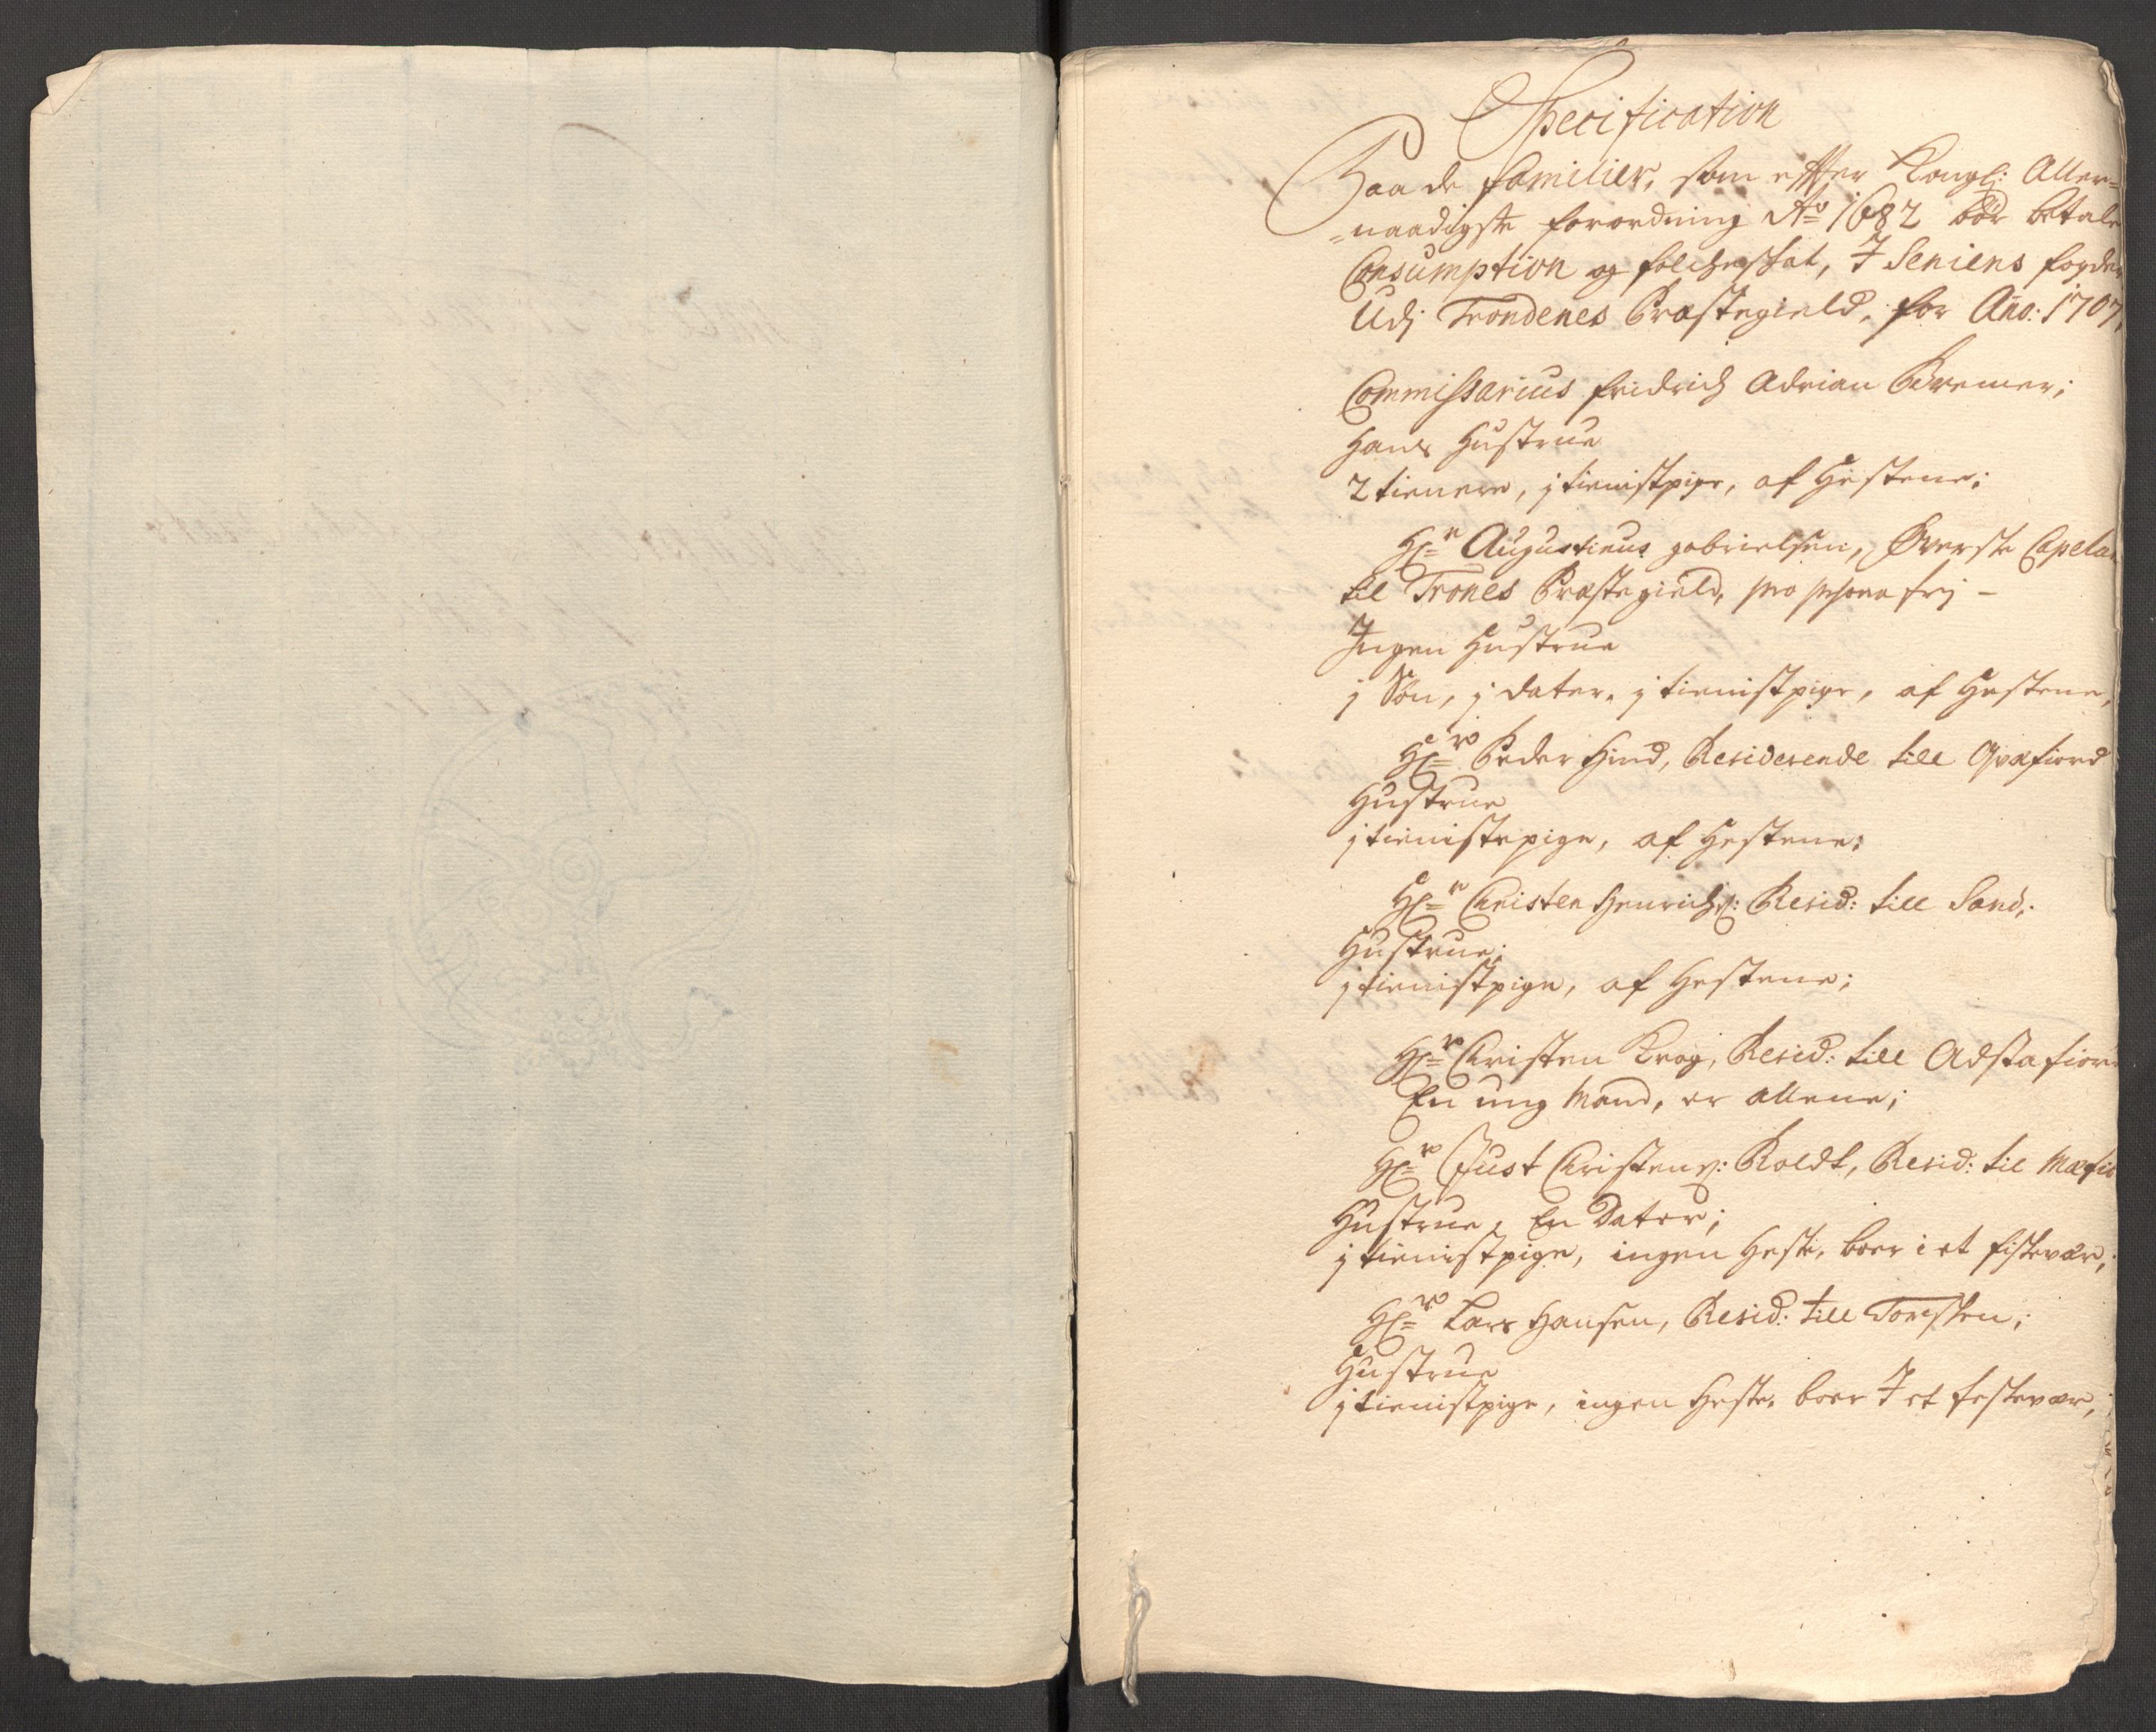 Specification
Paa de familier, som effter Kongl: Aller=
=naadigste forordning Ao 1682 bør betale
Consumption og folcheskat, I Seniens fogderi
Udj Trondenes Præstegield, for Año: 1707,
Commissarius fridrich Adrian Bremer;
Hans Hustrue
2 tienere, j tienistpige, af Hestene;
Hr Augustinus gabrielsen, Øverste Capelan
til Trones Præstegield, pro persona frj -
Ingen Hustrue
j Søn, j dater, j tienistpige, af Hestene,
Hr Peder Hind, Residerende till Qvæfiord
Hustrue
j tienistepige, af Hestene;
Hr Christen Henrichs: Resid: till Sand;
Hustrue;
j tienistpige, af Hestene;
Hr Christen Krog, Resid: till Adstafiord
En ung Mand, er allene;
Hr Just Christens: Boldt, Resid: til Mæfio
Hustrue, En Dater;
j tienistpige, ingen Heste, boer i et fiskevær,
Hr Lars Hansen, Resid: till Torsken;
Hustrue
j tienistpige, ingen Heste, boer I et feskevær,